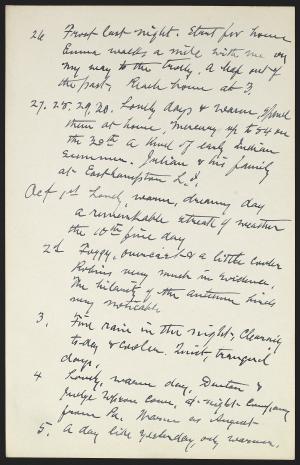 26 Frost last night. Start for home
Emma walks a mile with me on
my way to the trolly. A leap out of
the past. Reach home at 7.
27, 28, 29, 30. Lovely days & warm, spend
them at home, mercury up to 84 on
the 28th a kind of early Indian
summer. Julian & his family
at Easthampton L.I.
Oct 1st Lovely, warm, dreamy day
a remarkable streak of weather
the 10th fine day
2d Foggy, overcast & a little cooler
Robins very much in evidence,
The hilarity of the autumn birds
very noticable
3. Fine rain in the night, Clearing
to-day & cooler. Quiet, tranquil
days,
4 Lovely, warm day, &
Judge come, at night Company
from Pa. Warm as August
5. A day like yesterday, only warmer.